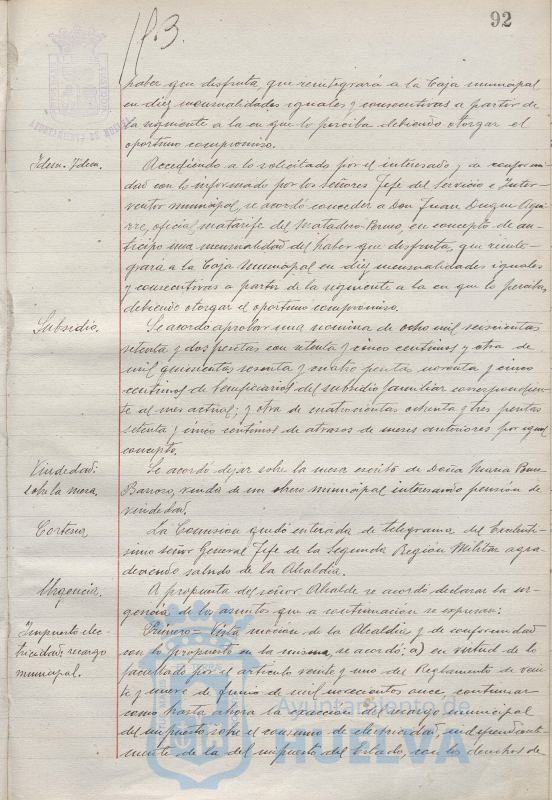 92
haber que disfruta, que reintegrará a la Caja municipal
en diez mensualidades iguales y consecutivas a partir de
la siguiente a la en que lo perciba debiendo otorgar el
oportuno compromiso.
Idem. Idem.
Accediendo a lo solicitado por el interesado y de conformi-
dad con lo informado por los señores Jefe del Servicio e Inter-
ventor municipal, se acordó conceder a Don Juan Duque Agui-
rre, oficial matarife del Matadero, en concepto de an-
ticipo una mensualidad del haber que disfruta, que reinte-
grará a la Caja Municipal en diez mensualidades iguales
y consecutivas a partir de la siguiente a la en que lo perciba,
debiendo otorgar el oportuno compromiso.
Subsidio.
Se acordó aprobar una nomina de ocho mil seiscientas
setenta y dos pesetas con setenta y cinco centimos y otra de
mil quinientas sesenta y cuatro pesetas noventa y cinco
centimos de beneficiarios del subsidio familiar correspondien-
te al mes actual; y otra de cuatrocientas ochenta y tres pesetas
setenta y cinco centimos de atrasos de meses anteriores por igual
concepto.
Viudedad:
sobre la mesa,
Se acordó dejar sobre la mesa escrito de Doña Maria
Barroso, viuda de un obrero municipal interesando pensión de
viudedad.
Cortesia
La Comisión quedó enterada de telegrama del Excelentí-
simo señor General Jefe de la Segunda Región Militar agra-
deciendo saludo de la Alcaldia.
Urgencia.
A propuesta del señor Alcalde se acordó declarar la ur-
gencia de los asuntos que a continuacion se expresan:
Impuesto elec-
tricidad; recargo
municipal.
Primero = Vista mocion de la Alcaldia y de conformidad
con lo propuesto en la misma, se acordó: a) en virtud de lo
facultado por el articulo veinte y uno del Reglamento de vein-
te y nueve de Junio de mil novecientos once, continuar
como hasta ahora la exaccion del recargo municipal
del impuesto sobre el consumo de electricidad, independiente-
mente de la del impuesto del Estado, con los derechos de
Ayuntamiento de
HUELVA